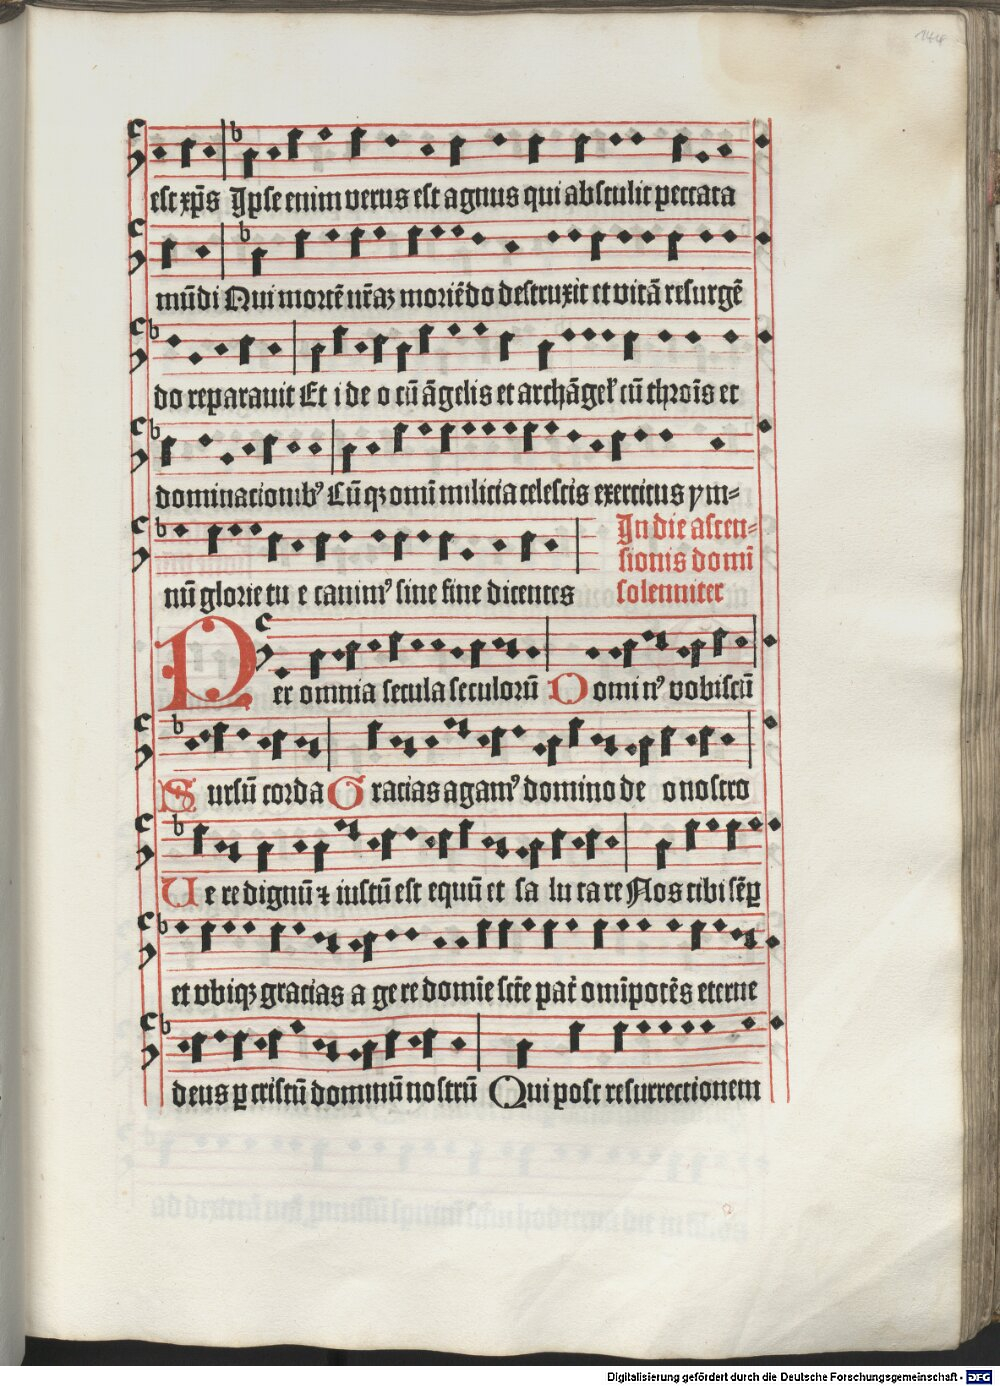 144
est xp̄s Ipse enim verus est agnus qui abstulit peccata
mūdi Qui mortē nr̄aʒ moriēdo destruxit et vitā resurgē
do reparauit Et i de o cū āgelis et archāgel' cū thronīs et
dominacionib⁹ Cūqʒ omī milicia celestis exercitus ym=
nū glorie tu e canim⁹ sine fine dicentes
In die ascen=
sionis domī
solenniter
Per omnia secula seculorū Domin⁹ vobiscū
Sursū corda Gracias agam⁹ domino de o nostro
Ve re dignū ⁊ iustū est equū et sa lu ta re Nos tibi sēꝑ
et vbiqʒ gracias a ge re domīe sct̄e pat̄ omīpotēs eterne
deus ꝑ cristū dominū nostrū Qui post resurrectionem
Digitalisierung gefördert durch die Deutsche Forschungsgemeinschaft - DFG